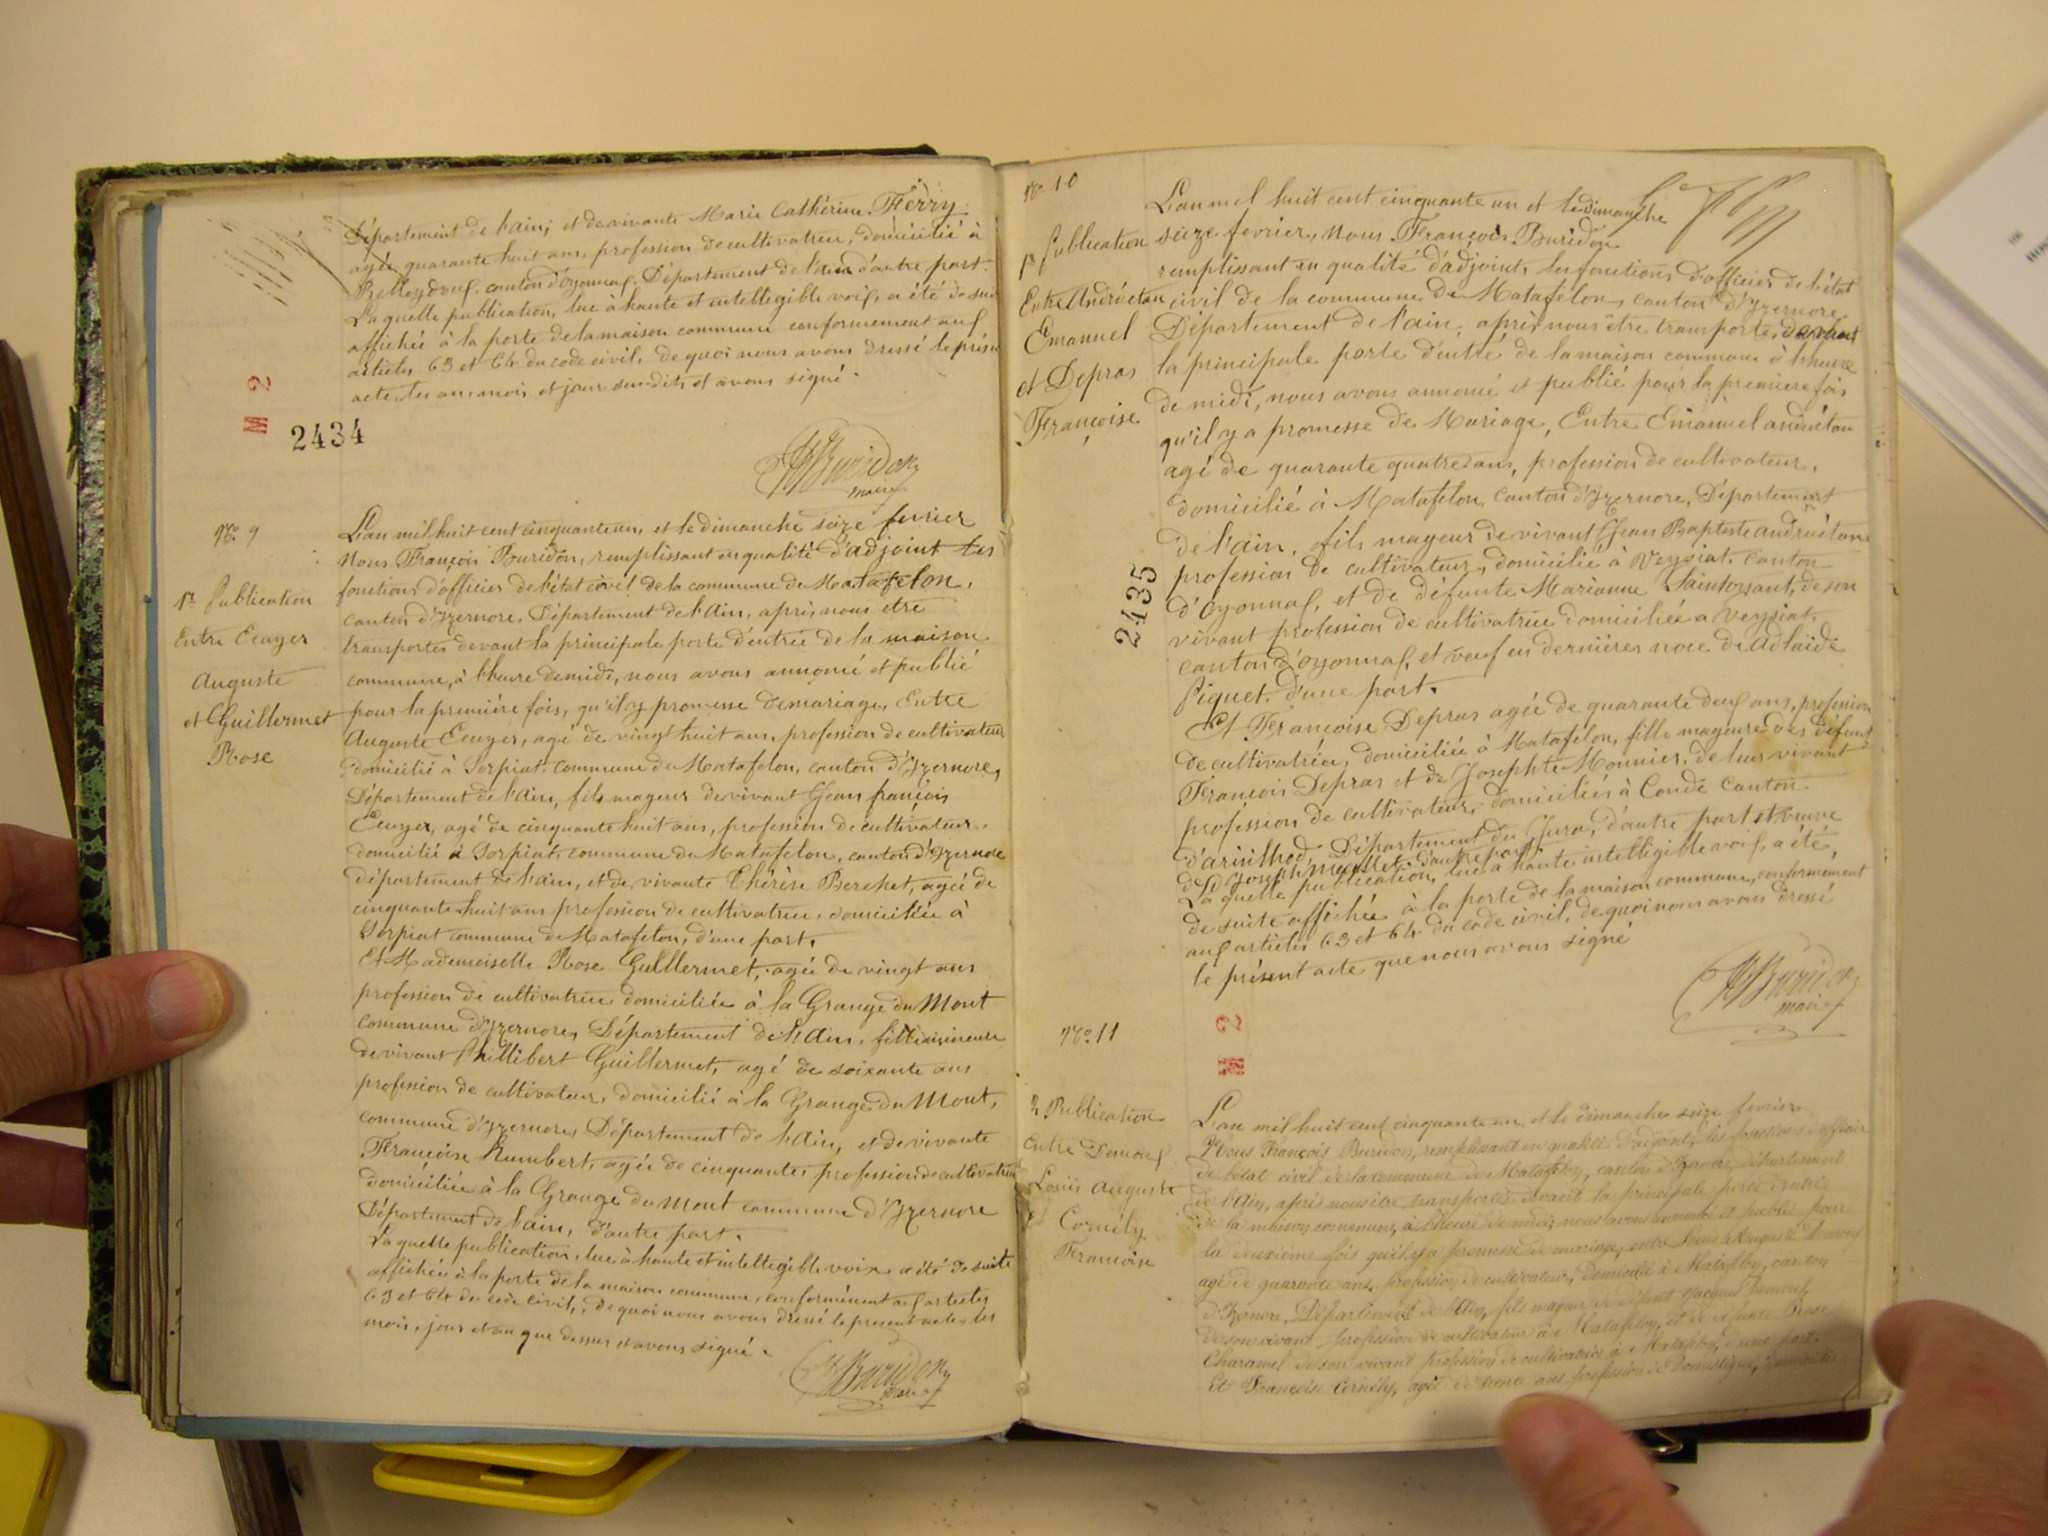 Département de l'ain; et de vivante Marie Cathérine Ferry
agée quarante huit ans, profession de cultivatrice, domicilié à
Belleydoux canton d'Oyonnax Département de l'ain d'autre part.
Laquelle publication, lue à haute et intellegible voix, a été de suite
affichée à la porte de la maison commune conformement aux
articles 63 et 64 du code civil, de quoi nous avons dressé le présent
acte, les an, mois et jour susdits et avons signé.
2
2434
Buridon
maire
No. 9
1re Publication
Entre Ecuyer
Auguste
et Guillermet
Rose
L'an mil huit cent cinquante un, et le dimanche seize fevrier
Nous François Buridon, remplissant en qualité d'adjoint les
fonctions d'officier de l'état civil de la commune de Matafelon,
canton d'Izernore, Département de l'Ain, après nous etre
transportés devant la principale porte d'entrée de la maison
commune, à l'heure de midi, nous avons annoncé et publié
pour la première fois, qu'il y promesse de mariage, Entre
Auguste Ecuyer, agé de vingt huit ans, profession de cultivateur
domicilié à Sorpiat, commune de Matafelon, canton d'Izernore,
Département de l'Ain, fils mageur de vivant Jean françois
Ecuyer, agé de cinquante huit ans, profession de cultivateur,
domicilié à Sorpiat, commune de Matafelon, canton d'Izernore
département de l'ain, et de vivante Thérèse Berchet, agée de
cinquante huit ans profession de cultivatrice, domiciliée à
Sorpiat commune de Matafelon, d'une part,
Et Mademoiselle Rose Guillermet, agée de vingt ans
profession de cultivatrice domiciliée à la Grange du Mont
commune d'Izernore, Département de l'Ain, fille mineure
de vivant Phillibert Guillermet, agé de soixante ans
profession de cultivateur, domicilié à la Grange du Mont,
commune d'Izernore, Département de l'Ain, et de vivante
Françoise Humbert, agée de cinquante, profession de cultivatrice
domiciliée à la Grange du Mont commune d'Izernore
Département de l'ain, d'autre part.
Laquelle publication, lue à haute et intellegible voix a été de suite
affichée à la porte de la maison commune, conformément aux articles
63 et 64 du code civil, de quoi nous avons dressé le present acte, les
mois, jour et an que dessus et avons signé.
Buridon
maire
No. 10
1re Publication
Entre Andréetan
Emanuel
et Depras
Françoise
2435
L'an mil huit cent cinquante un et le dimanche
seize fevrier, Nous François Buridon
remplissant en qualité d'adjoint, les fonctions d'officier de l'état
civil de la commune de Matafelon, canton d'Izernore
Département de l'ain, après nous être transportés devant
la principale porte d'entré de la maison commune à l'heure
de midi, nous avons annoncé et publié pour la premiere fois,
qu'il y a promesse de Mariage, Entre Emanuel andréétan
agé de quarante quatre ans, profession de cultivateur,
domicilié à Matafelon canton d'Izernore, Département
de l'ain, fils mageur de vivant Jean Baptiste andréétan
profession de cultivateur, domicilié à Veyziat canton
d'oyonnax, et de défunte Marianne Saintoyant, de son
vivant profession de cultivatrice domiciliée a Veyziat
canton d'oyonnax, et veuf en dernières noce de Adlaide
Piquet, d'une part.
Et Françoise Depras agée de quarante deux ans, profession
de cultivatrice, domiciliée à Matafelon, fille mageure des défunt
François Depras et de Josephte Monnier, de leur vivant
profession de cultivateur, domiciliés à Condé canton
d'arinthod, Département du Jura, d'autre part et veuve
de Joseph d'autre part.
Laquelle publication, lue à haute intelligible voix, a été
de suite affichée à la porte de la maison commune, conformément
aux articles 63 et 64 du code civil, de quoi nous avons dressé
le présent acte que nous avons signé
Buridon
maire
2
No. 11
2e Publication
Entre Demouf
Louis Auguste
Et Cornély
Francoise
L'an mil huit cent cinquante un, et le dimanche seize fevrier
Nous François Buridon, remplissant en qualité d'adjoint, les fonctions d'officier
de l'état civil de la commune de Matafelon, canton d'Izernore, département
de l'Ain, après nous être transportés devant la principale porte d'entrée
de la maison commune, à l'heure de midi, nous avons annoncé et publié pour
la deuxième fois qu'il y a promesse de mariage, entre Louis Auguste
agé de quarante ans, profession de cultivateur, domicilié à Matafelon, canton
d'Izernore, Département de l'Ain, fils mageur de défunt Jacques
de son vivant profession de cultivateur à Matafelon, et de défunte Rose
Charamel de son vivant profession de cultivatrice à Matafelon, d'une part.
Et Françoise Cornély, agée de trente ans profession de Domestique,